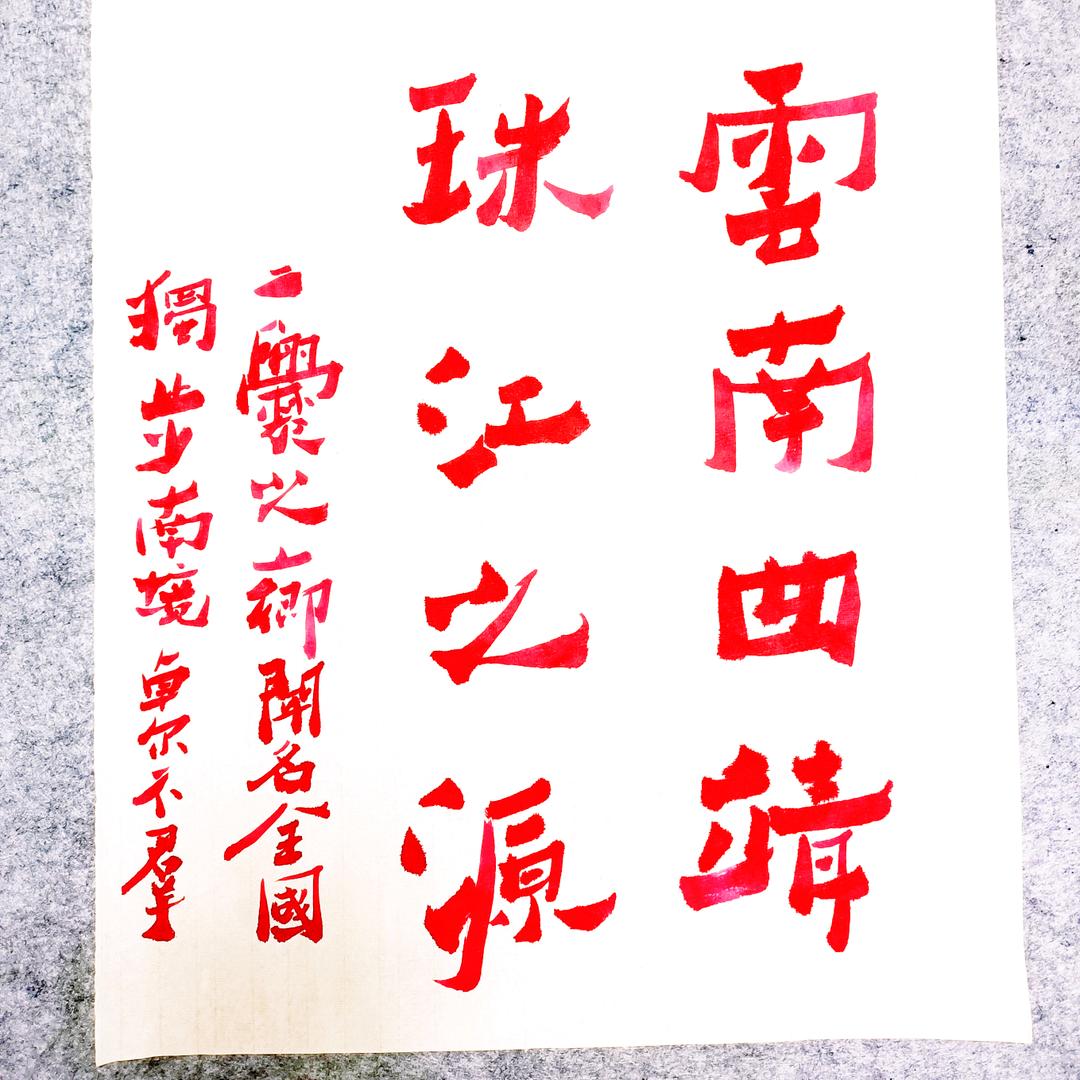 雲南曲靖
珠江之源
二爨之鄉聞名全國
獨步南境卓尔不羣